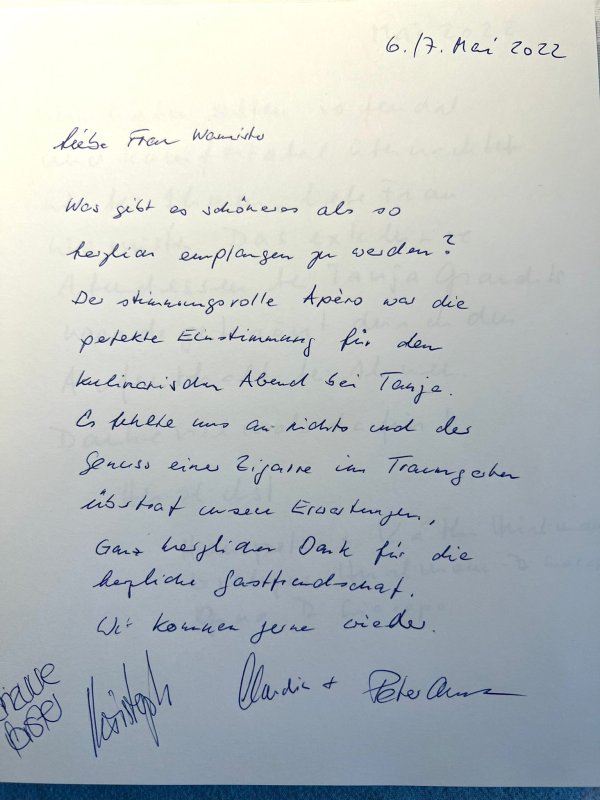 6./7. Mai 2022
Liebe Frau Wamister
Was gibt es schöneres als so
herzlich empfangen zu werden?
Der stimmungsvolle Apèro war die
perfekte Einstimmung für den
kulinarischen Abend bei Tanja.
Es fehlte uns an nichts und der
Genuss einer Zigarre im Traumgarten
übertraf unsere Erwartungen,
Ganz herzlichen Dank für die
herzliche Gastfreundschaft.
Wir kommen gerne wieder.
Christoph Claudia + Peter